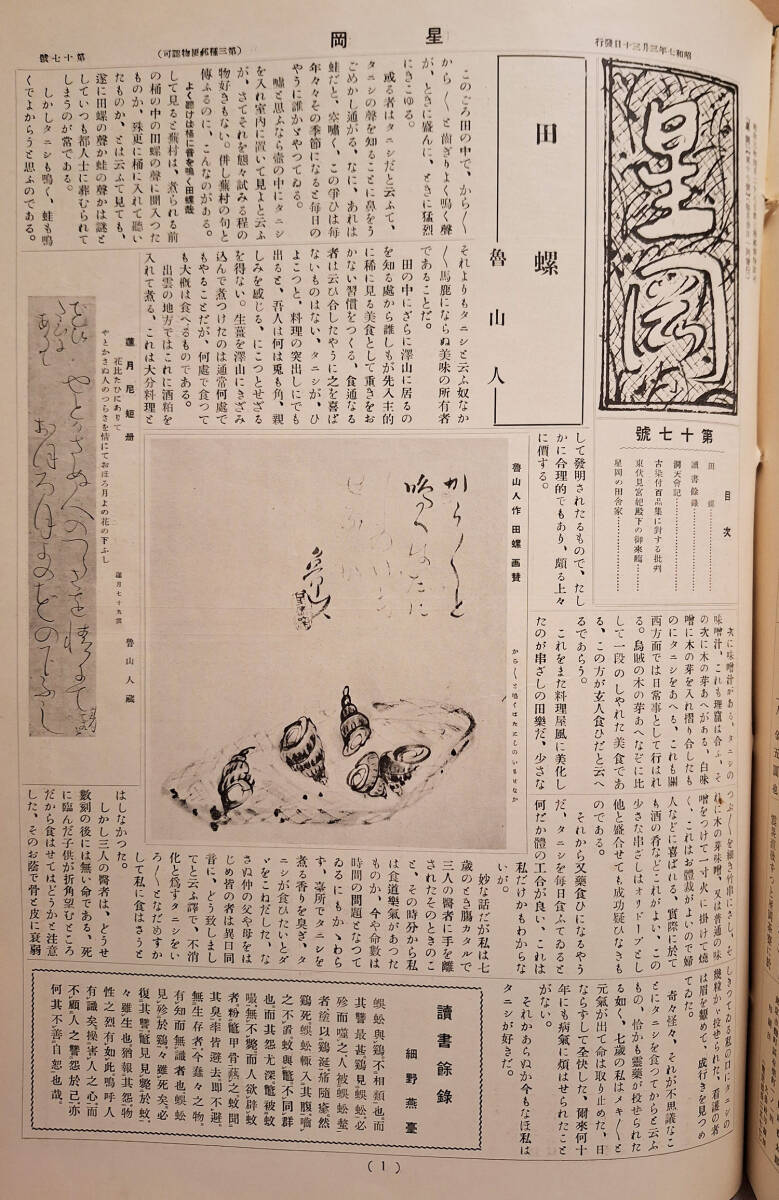 昭和七年三月三十日發行
星岡
(第三種郵便物認可)
第十七號
星岡
第十七號
目次
田螺
讀書餘錄
洞天會記
古染付百品集に對する批判
東伏見宮妃殿下の御來臨
星岡の田舎家
田螺
魯山人
このごろ田の中で、から〳〵
から〳〵と齒ぎりよく鳴く聲
が、ときに盛んに、ときに猛烈
にきこゆる。
或る者はタニシだと云ふて、
タニシの聲を知ることに鼻をう
ごめかし通がる、なに、あれは
蛙だと、空嘯く、この爭ひは毎
年々々その季節になると毎日の
やうに誰かゞやつてゐる。
嘘と思ふなら壺の中にタニシ
を入れ室内に置いて見よと云ふ
が、さてそれを態々試みる程の
物好きもない。併し蕪村の句と
傳ふるのに、こんなのがある。
よく聽けば桶に音を鳴く田螺哉
して見ると蕪村は、煮られる前
の桶の中の田螺の聲に聞入つた
ものか、殊更に桶に入れて聽い
たものか、とは云ふて見ても、
遂に田螺の聲か蛙の聲かは謎と
していつも都人士に葬むられて
しまうのが常である。
しかしタニシも鳴く、蛙も鳴
くでよからうと思ふのである。
それよりもタニシと云ふ奴なか
〳〵馬鹿にならぬ美味の所有者
であることだ。
田の中にざらに澤山に居るの
を知る處から誰しもが先入主的
に稀に見る美食として重きをお
かない習慣をつくる、食通なる
者は云ひ合したやうに之を喜ば
ないものはない、タニシが、ひ
よこつと、料理の突出しにでも
出ると、吾人は何は兎も角、親
しみを感じる、にこつとせざる
を得ない。生薑を澤山にきざみ
込んで煮つけたのは通常何處で
もやることだが、何處で食つて
も大槪は食べるものである。
出雲の地方ではこれに酒粕を
入れて煮る、これは大分料理と
して發明されたるもので、たし
かに合理的でもあり、頗る上々
に價する。
蓮月尼短册
花比たひにありて
やとかさぬ人のつらさを情にておほろ月よの花の下ふし
蓮月七十九歲
魯山人藏
魯山人作 田螺 画賛
から〳〵と鳴くはたにしのいもせなか
から〳〵と
鳴くはたに
次に味噌汁がある、タニシの
味噌汁、これも理窟は合ふ、そ
の次に木の芽あへがある、白味
噌に木の芽を入れ摺り合したも
のにタニシをあへる、これも關
西方面では日常事として行はれ
る。烏賊の木の芽あへなぞに比
して一段のしやれた美食であ
る、この方が玄人食ひだと云へ
るであらう。
これをまた料理屋風に美化し
たのが串ざしの田樂だ、少さな
つぶ〳〵を細き竹串にさし、そ
れに木の芽味噌、又は普通の味
噌をつけて一寸火に掛けて燒
く、これはお體裁がよいので婦
人などに喜ばれる、實際に於て
も酒の肴などこれがよい、この
少さな串ざしはオリドーブとし
他と盛合せても成功疑ひなきも
のである。
それから又藥食ひになるやう
だ、タニシを毎日食ふてゐると
何だか體の工合が良い、これは
私だけかもわからな
いが。
妙な話だが私は七
歲のとき腸カタルで
三人の醫者に手を離
されたそのときのこ
と、その時分から私
は食道樂氣があつた
ものか、今や命數は
時間の問題となつて
ゐるにもかゝわら
す、臺所でタニシを
煮る香りを臭ぎ、タ
ニシが食ひたいとダ
ヾをこねだした、な
さぬ仲の父や母をは
じめ皆の者は異口同
音に、どう致しまし
てと云ふ譯で、不消
化と爲すタニシをい
ろ〳〵となだめすか
して私に食はさうと
はしなかつた。
しかし三人の醫者は、どうせ
數刻の後には無い命である、死
に臨んだ子供が折角望むところ
だから食はせてはどうかと注意
した、そのお蔭で骨と皮に衰弱
しきつてゐる私の口にタニシの
幾粒かゞ投せられた、看護の者
は眉を顰めて、成行きを見つめ
てゐた。
奇々怪々、それが不思議なこ
とにタニシを食つてからと云ふ
もの、恰かも靈藥が投せられた
る如く、七歲の私はメキ〳〵と
元氣が出て命は取り止めた、日
ならずして全快した、爾來何十
年にも病氣に煩はせられたこと
がない。
それかあらぬか今もなほ私は
タニシが好きだ。
讀書餘錄
細野燕臺
蜈蚣與鷄不相類也而
其讐最甚鷄見蜈蚣必
殄而噬之人被蜈蚣螫
者塗以鷄涎痛隨瘳然
鷄死蜈蚣輙入其腹噬
之不置蚊與鼈不同群
也而其怨尤深鼈被蚊
噬無不斃而人欲辟蚊
者粉鼈甲骨爇之蚊聞
其臭率皆避去卽不避
無生存者今蠢々之物
有知而無識者也蜈蚣
見殄於鷄々雖死必
復其讐鼈見斃於蚊
々雖生也猶報其怨物
性之烈有如此嗚呼人
有識矣操害人之心而
不顧人之讐怨於己亦
何其不善自恕也哉
(1)